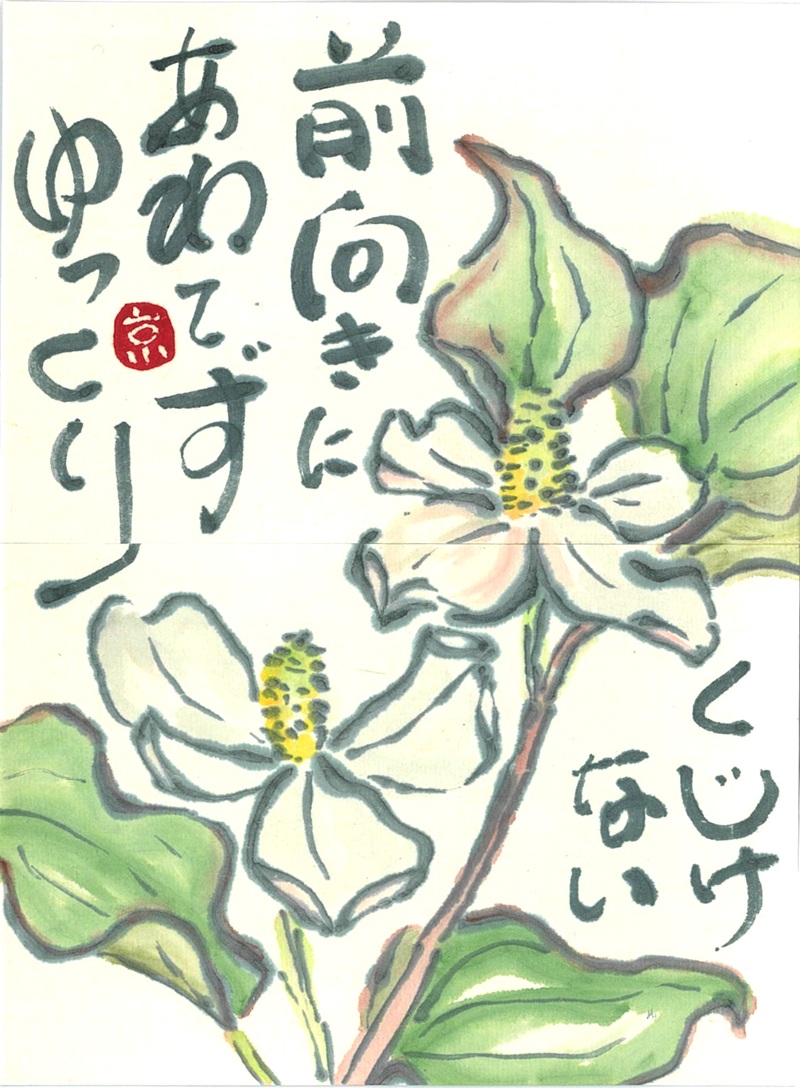 前向きに
あわてず
ゆっくり
京
くじけ
ない